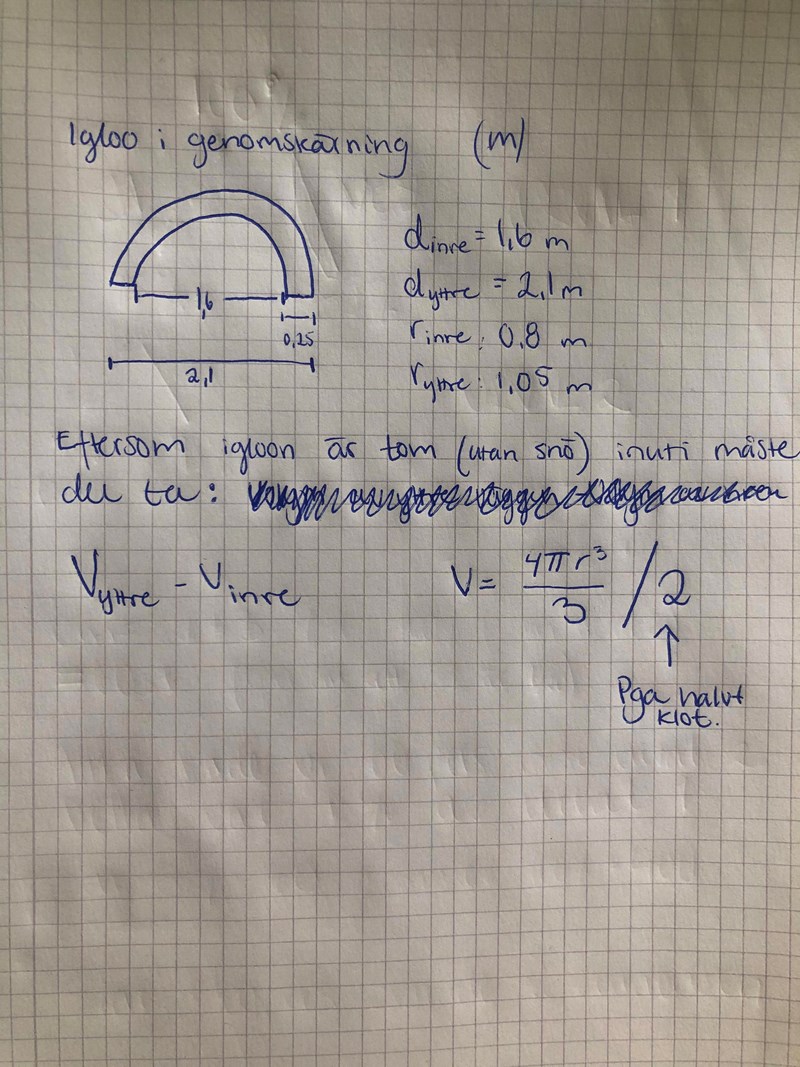 Igloo i genomskärning (m)
1,6
0,25
2,1
dinre = 1,6 m
dyttre = 2,1 m
rinre: 0,8 m
ryttre: 1,05 m
Eftersom igloon är tom (utan snö) inuti måste
du ta:
Vyttre - Vinre
V = 4πr³/3 /2
↑
Pga halvt
klot.